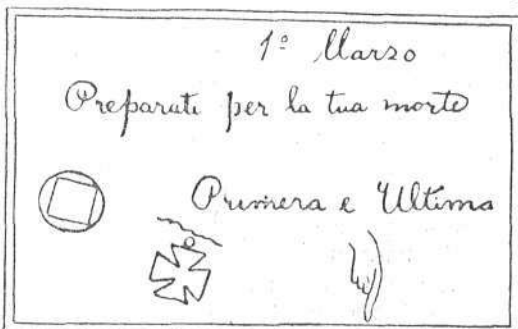 1º Marzo
Preparati per la tua morte
Primera e Ultima